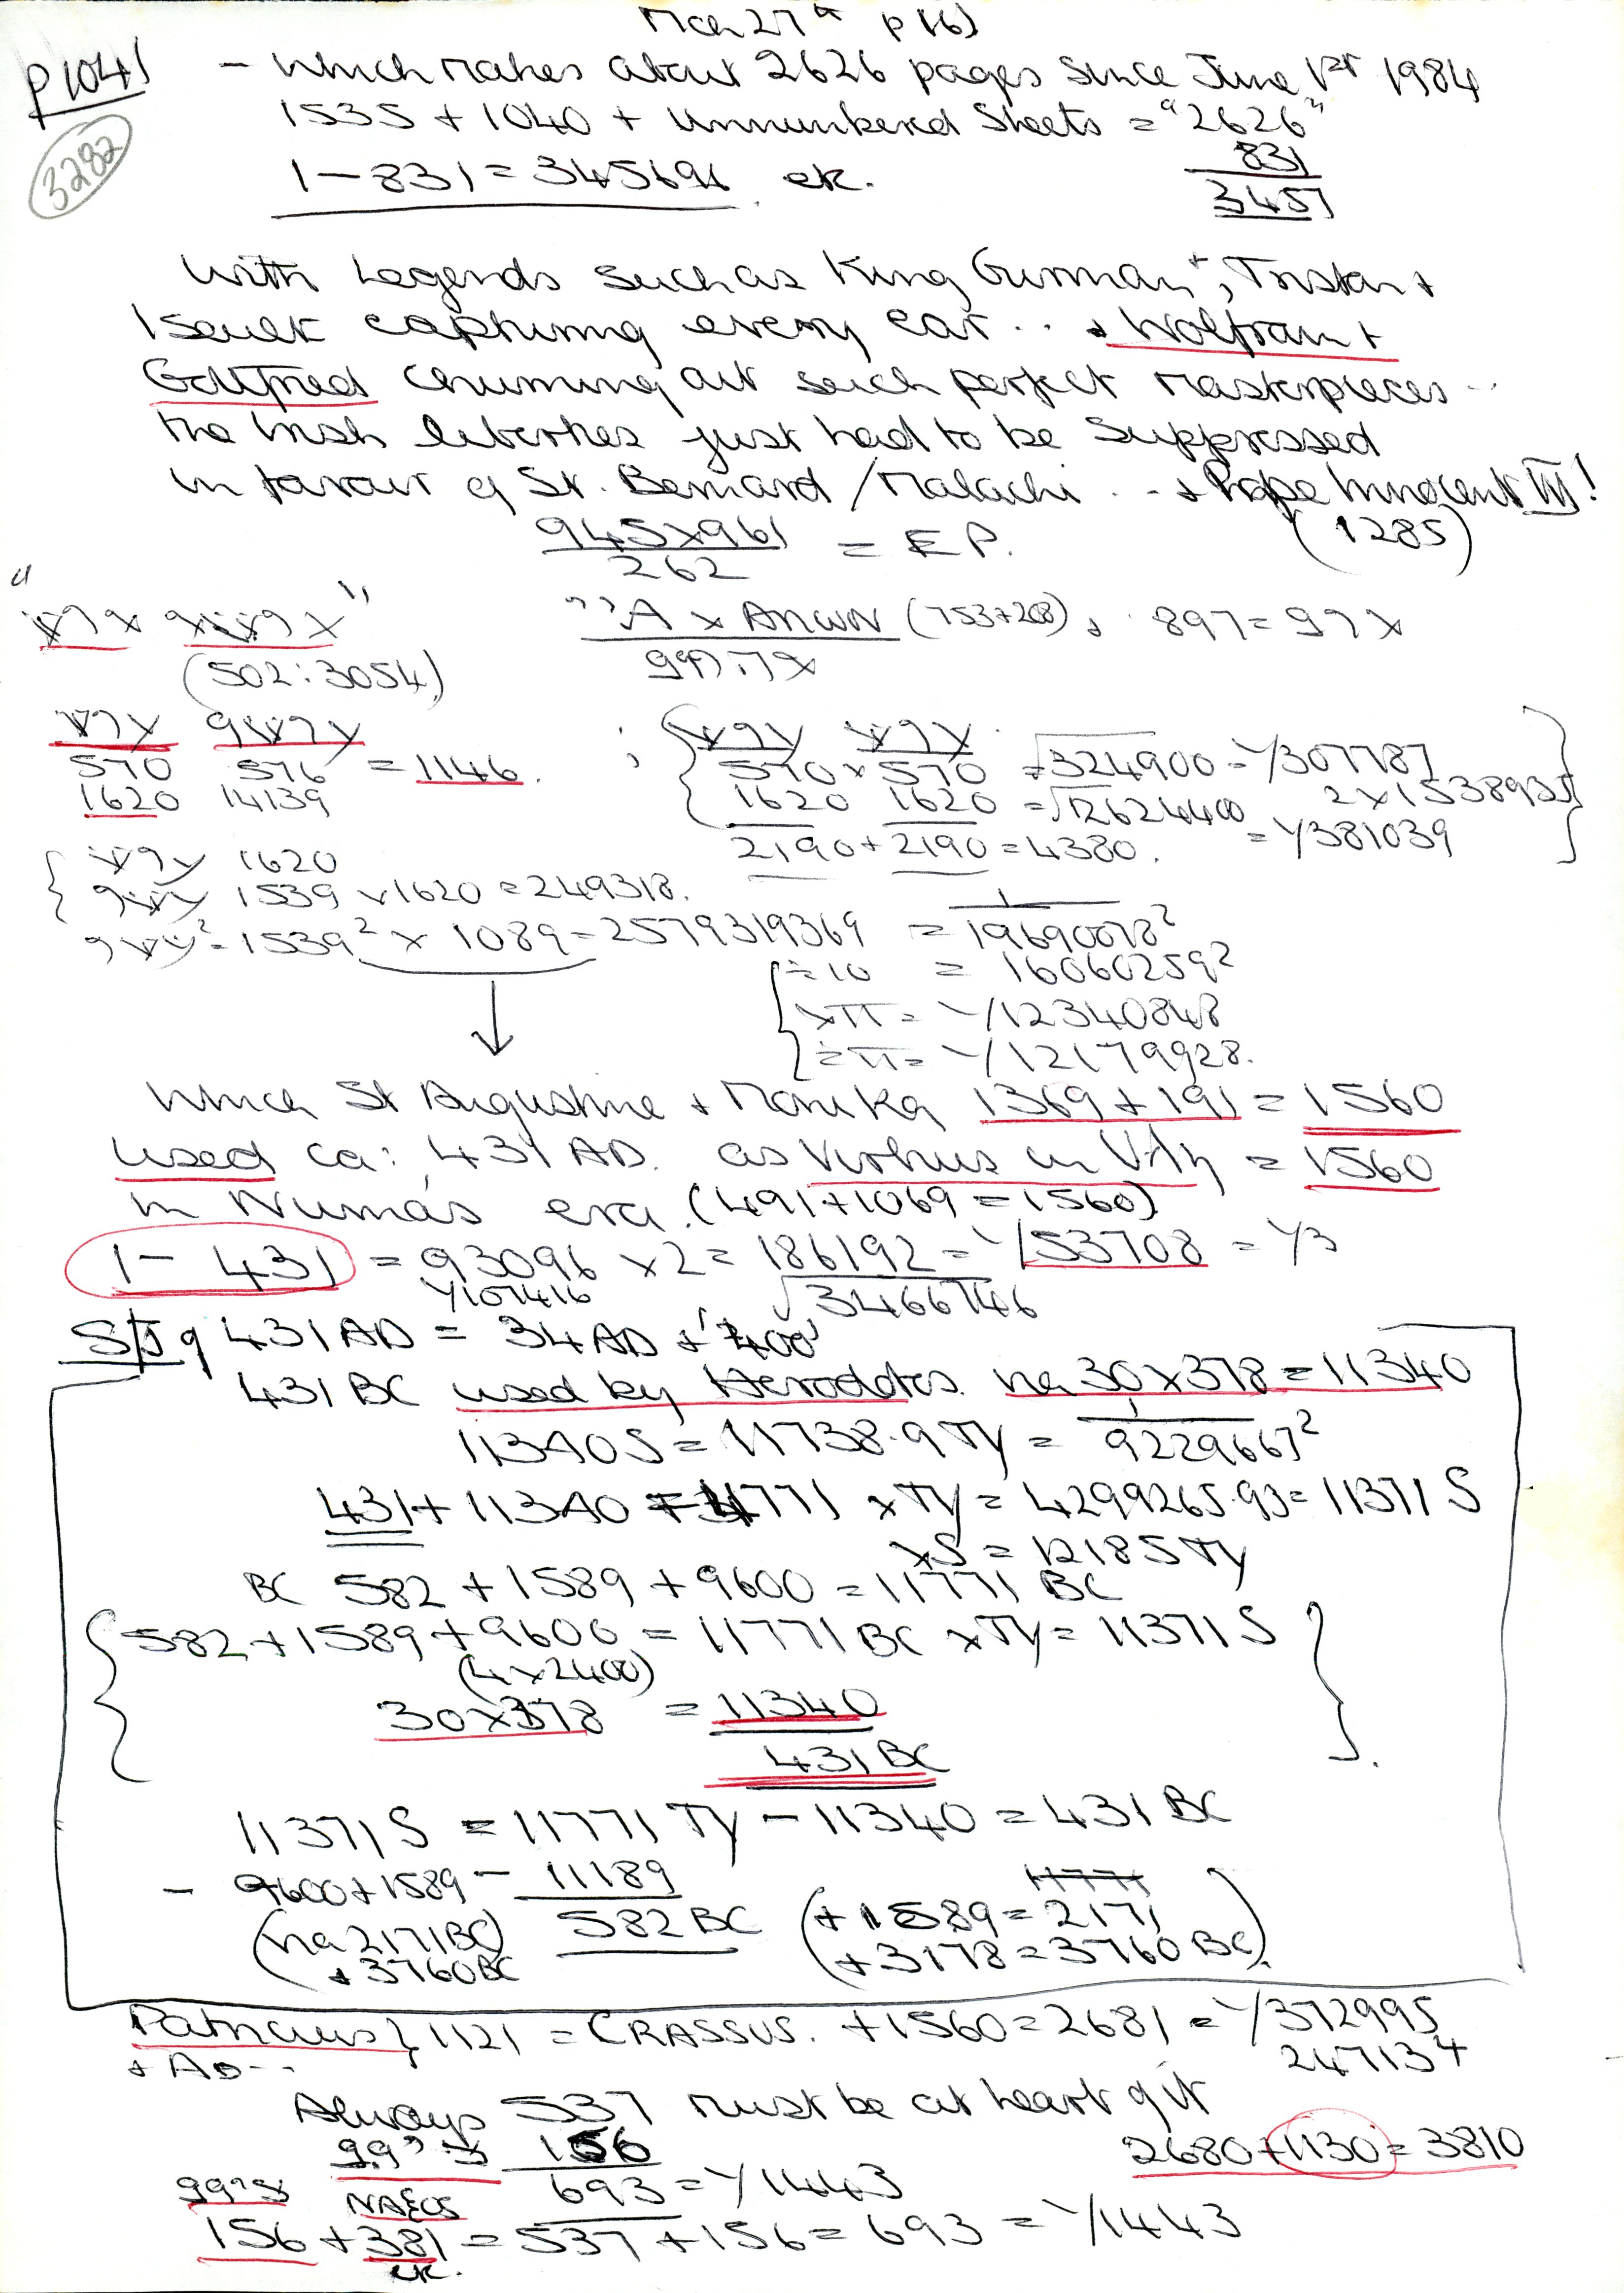 March 27th p(6)
p1041 - Which makes about 2626 pages since June 1st 1984
3282
1535 + 1040 + unnumbered sheets = "2626"
831
1 - 831 = 345696 etc. 3457
With Legends such as King Gurman+, Tristan +
Iseult capturing every ear .. + Wolfram +
Gottfried churning out such perfect masterpieces ..
the Irish liberties just had to be suppressed
in favour of St. Bernard / Malachi .. + Pope Innocent III!
945 x 961 = E P. (1285)
262
A x ANWN (753+208) 897 =
(502 : 3054)
570 576 = 1146.
1620 14139
570 x 570 = √324900 = 1/307787
1620 1620 = √2624400 2 x 153893
2190 + 2190 = 4380. = 1/381039
1620
1539 x 1620 = 249318.
= 1539² x 1089 = 2579319369 = 1/19690078²
÷10 = 16060259²
xπ = 1/12340848
÷π = 1/12179928.
Which St Augustine + Monika 1369 + 191 = 1560
used ca: 431 AD. as Virtus in = 1560
in Numa's era. (491 + 1069 = 1560)
1 - 431 = 93096 x 2 = 186192 = 1/53708 = 1/3
1/107416 √3466746
S/J of 431 AD = 34 AD + '400'
431 BC used by Herodotos. na 30 x 378 = 11340
11340 S = 11738.9 TY = 1/9229667²
431 + 11340 = 11771 x TY = 4299265.93 = 11371 S
x S = 12185 TY
BC 582 + 1589 + 9600 = 11771 BC
582 + 1589 + 9600 = 11771 BC x TY = 11371 S
(4 x 2400)
30 x 378 = 11340
431 BC
11371 S = 11771 TY - 11340 = 431 BC
- 9600 + 1589 - 11189 11771
(na 2171 BC) 582 BC (+ 1589 = 2171
+ 3760 BC + 3178 = 3760 BC).
Patricius } 1121 = CRASSUS. + 1560 = 2681 = 1/372995
+ AD -- 247134
Always 537 must be at heart of it
156 2680 + 1130 = 3810
NAEOS 693 = 1/1443
156 + 381 = 537 + 156 = 693 = 1/1443
etc.